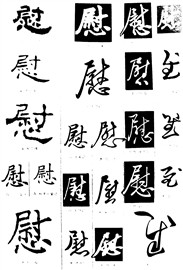 慰 慰 慰 慰
慰 慰 慰 慰
慰 慰 慰 慰 慰
慰 慰 慰 慰 慰 慰
慰 慰 慰 慰